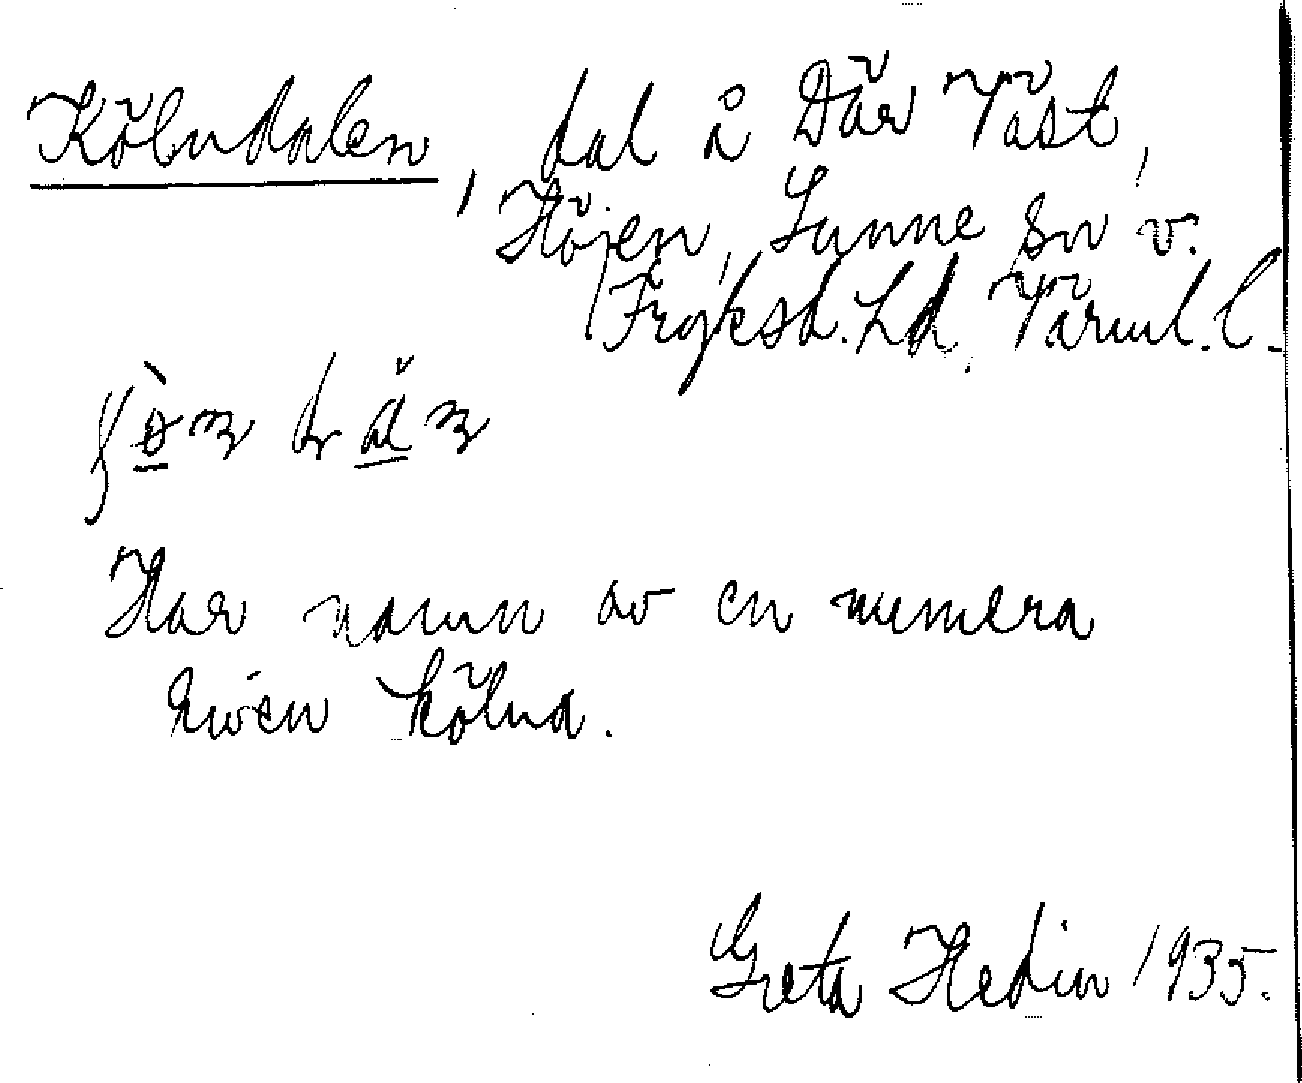 Kölndalen, dal å Där Väst,
Höjen, Sunne sn v.
Fryksd. hd, Värml. l.
Har namn av en numera
riven kölna.
Greta Hedin 1935.